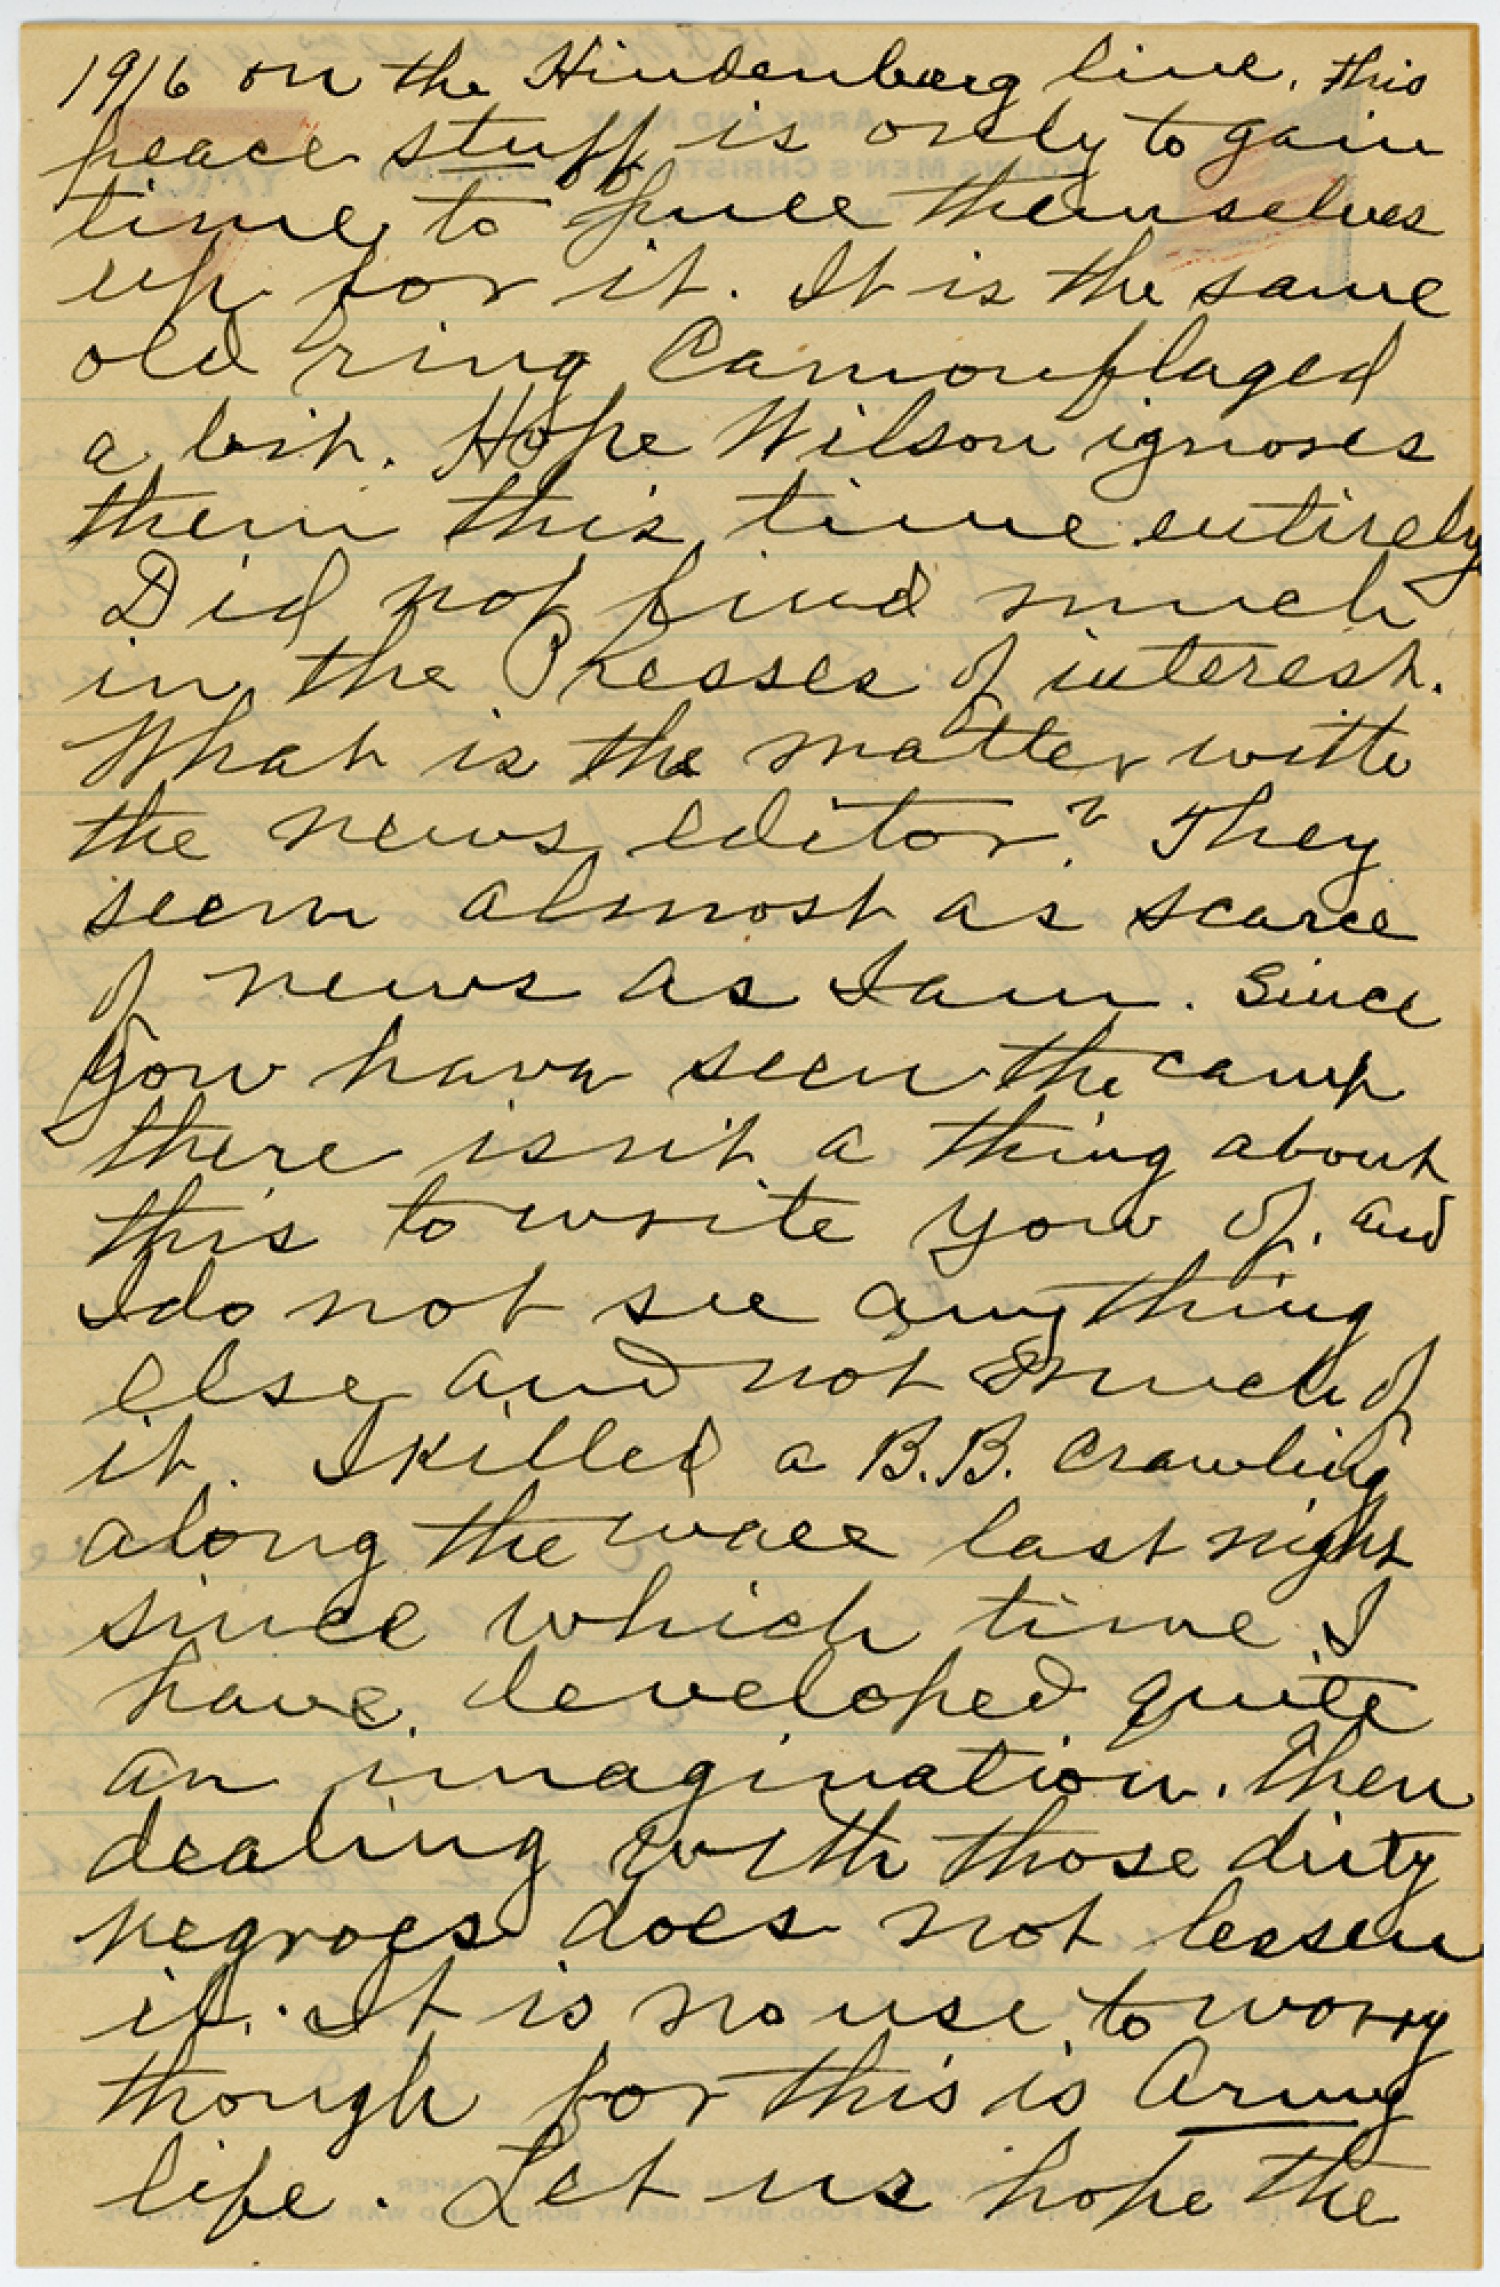 1916 on the Hindenberg line. This
peace stuff is only to gain
time to pull themselves
up for it. It is the same
old ring Camouflaged
a bit. Hope Wilson ignores
them this time entirely
Did not find much
in the Presses of interest.
What is the matter with
the news editor? They
seem almost as scarce
of news as I am. Since
you have seen the camp
there isn't a thing about
this to write you of. and
I do not see anything
else and not much of
it. I killed a B.B. crawling
along the wall last night
since which time I
have developed quite
an imagination. Then
dealing with those dirty
negroes does not lessen
it. It is no use to worry
though for this is Army
life. Let us hope the